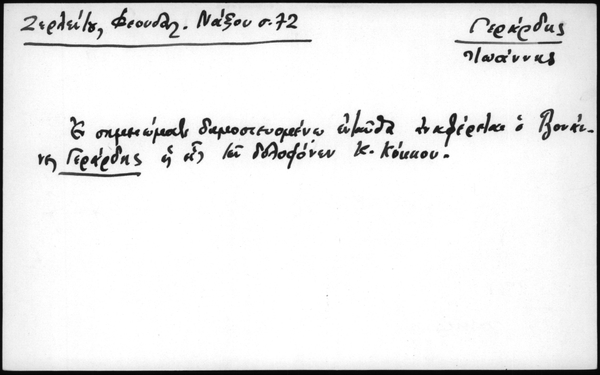 Ζερλέντη, Φεουδαλ. Νάξου σ. 72
Γεράρδης
Ἰωάννης
Ἐν σημειώματι δημοσιευομένῳ ἐνταῦθα ἀναφέρεται ὁ
Γεράρδης ὁ εἷς τῶν δολοφόνων Κ. Κόκκου.